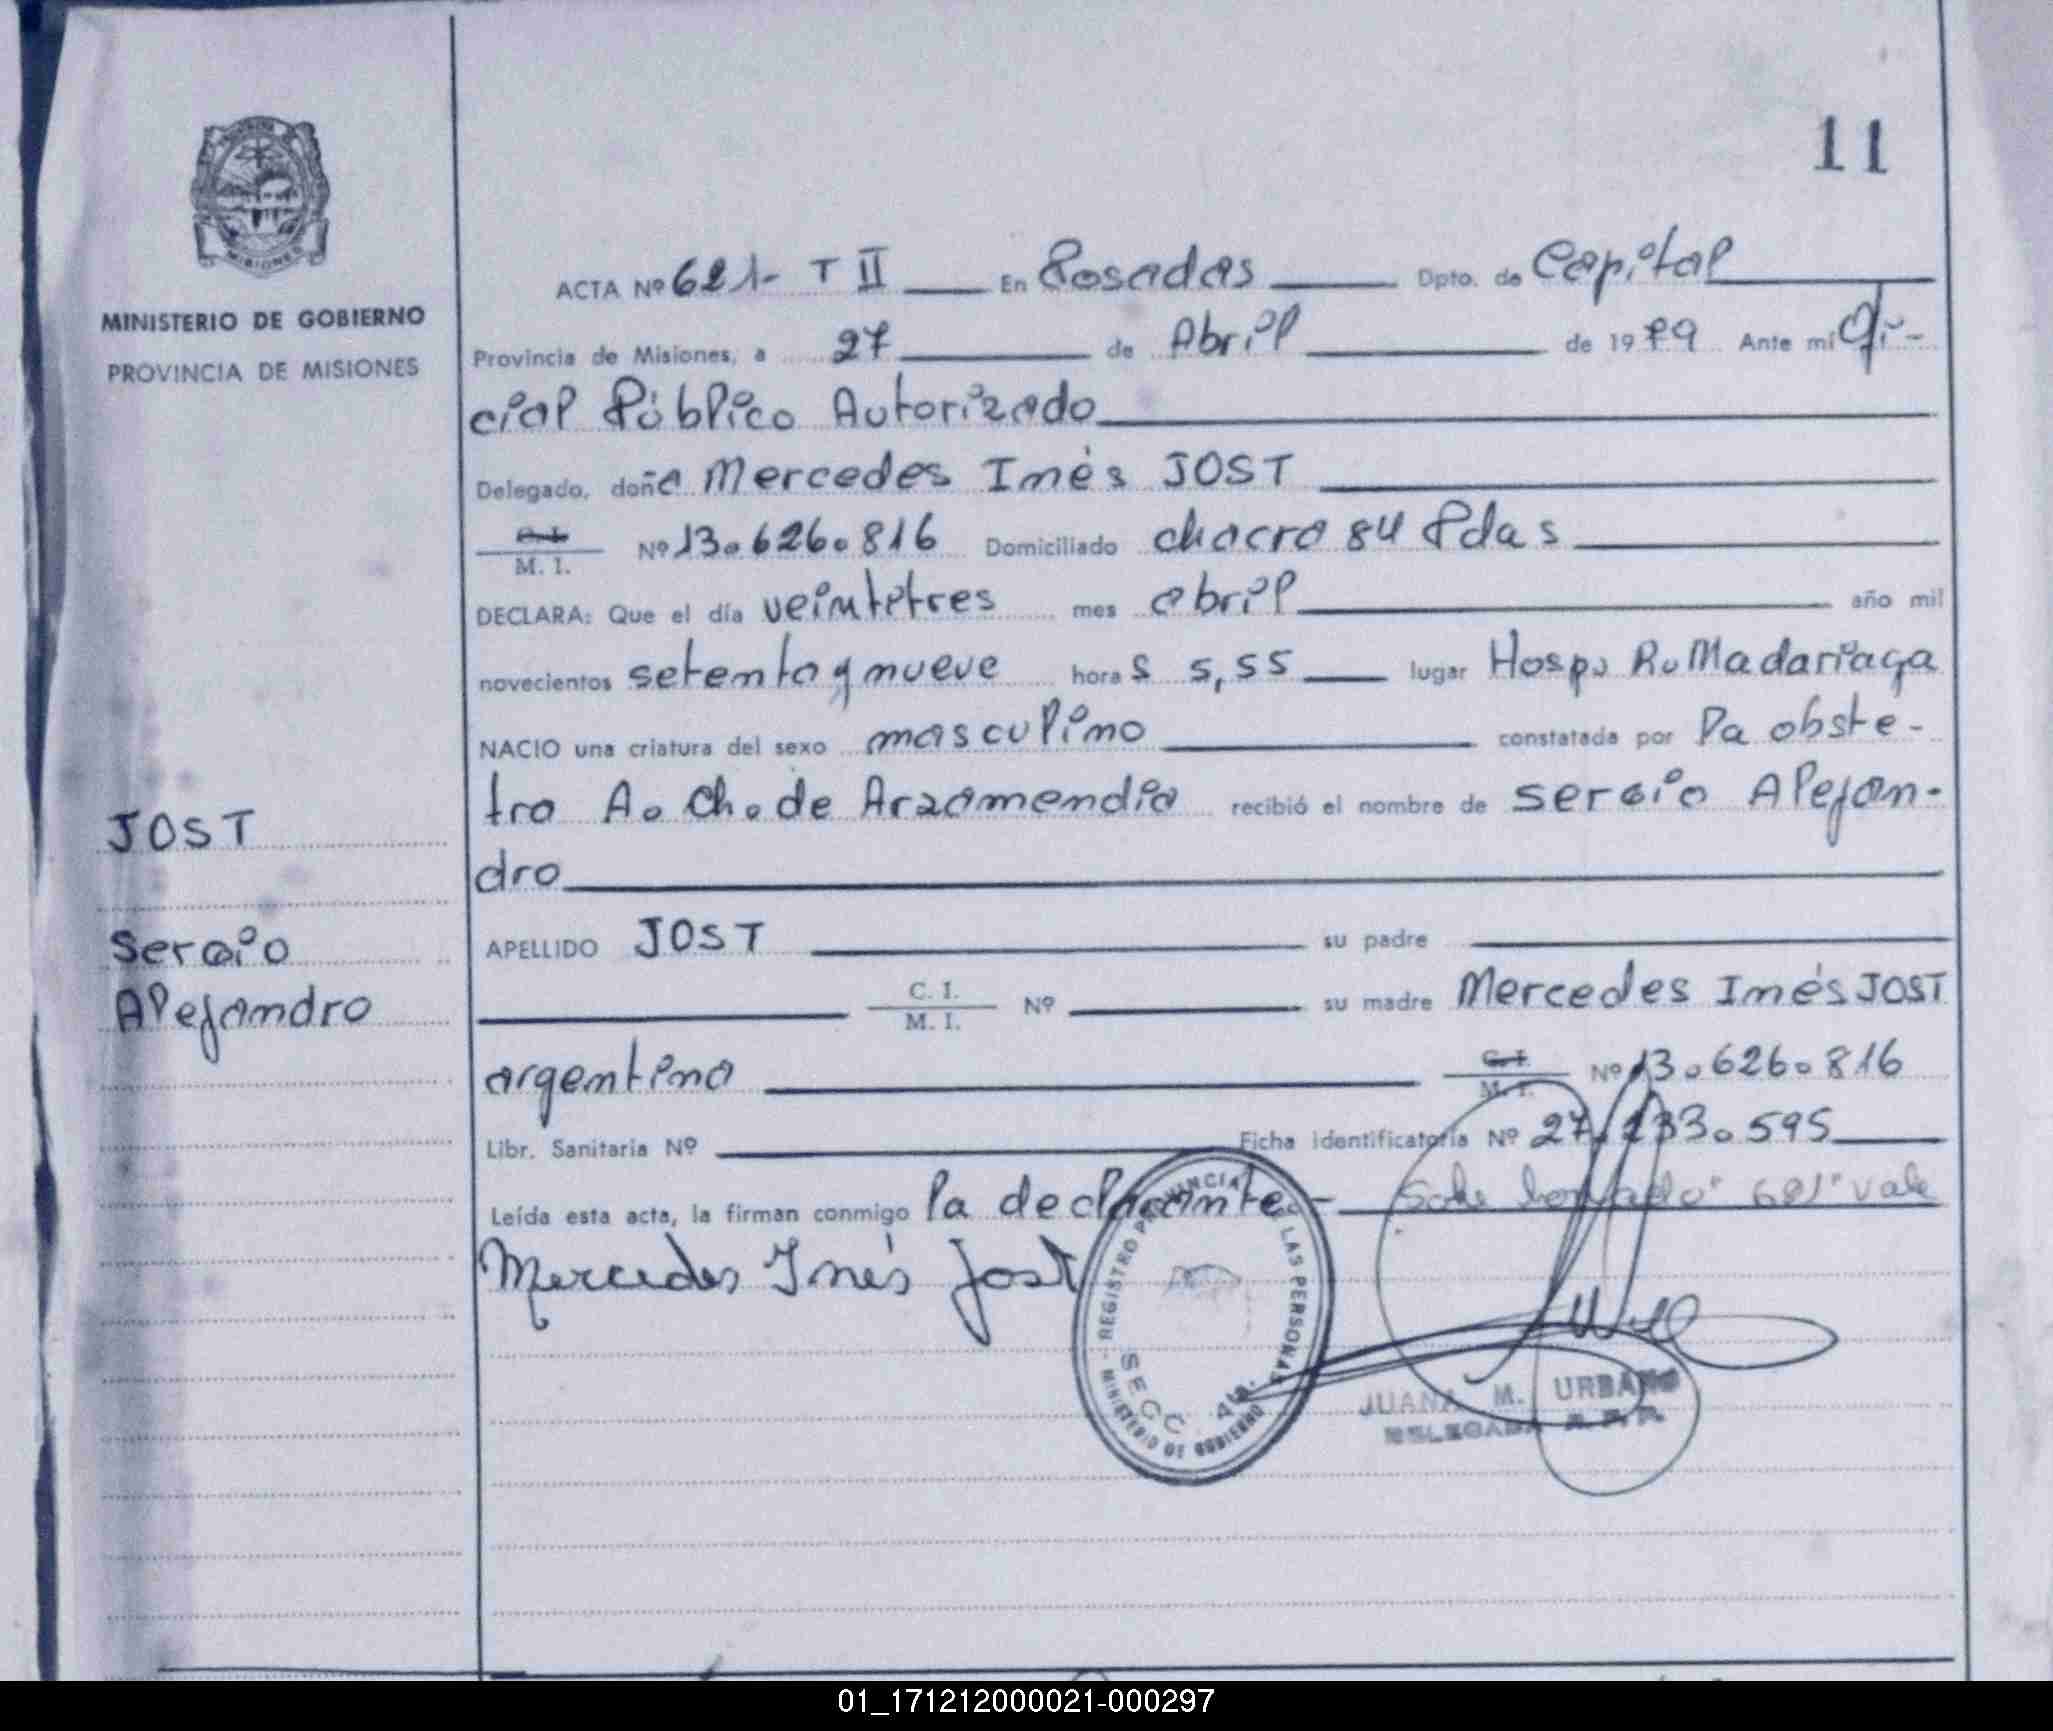 11
MISIONES
MINISTERIO DE GOBIERNO
PROVINCIA DE MISIONES
ACTA Nº 621- T II En Posadas Dpto. de Capital
Provincia de Misiones, a 27 de Abril de 1979 Ante mi Ofi-
cial Público Autorizado
Delegado, doña Mercedes Inés JOST
C. I. / M. I. Nº 13.626.816 Domiciliado chacra 84 Pdas
DECLARA: Que el día veintitres mes abril año mil
novecientos setenta y nueve horas 5,55 lugar Hosp. R. Madariaga
NACIO una criatura del sexo masculino constatada por la obste-
tra A. Ch. de Arzamendia recibió el nombre de Sergio Alejan-
dro
APELLIDO JOST su padre
C. I. / M. I. Nº su madre Mercedes Inés JOST
argentina C. I. / M. I. Nº 13.626.816
Libr. Sanitaria Nº Ficha identificatoria Nº 27.233.595
Leída esta acta, la firman conmigo la declarante.- Sobre borrado "621" Vale
Mercedes Inés Jost
JOST
Sergio
Alejandro
REGISTRO PROVINCIAL DE LAS PERSONAS
MINISTERIO DE GOBIERNO
SECC. 4ta.
JUANA M. URBANO
DELEGADA R. P. P.
01_171212000021-000297